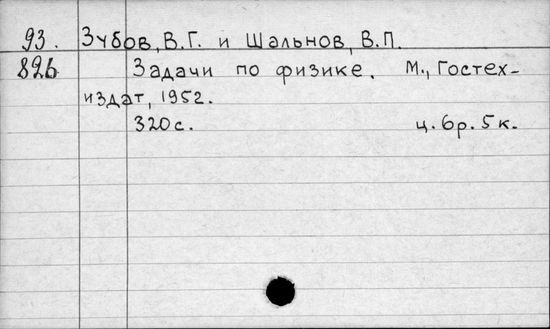 93. Зубов, В.Г. и Шальнов, В.П.
826 Задачи по физике. М., Гостех-
издат, 1952.
320 с. ц. 6р. 5к.